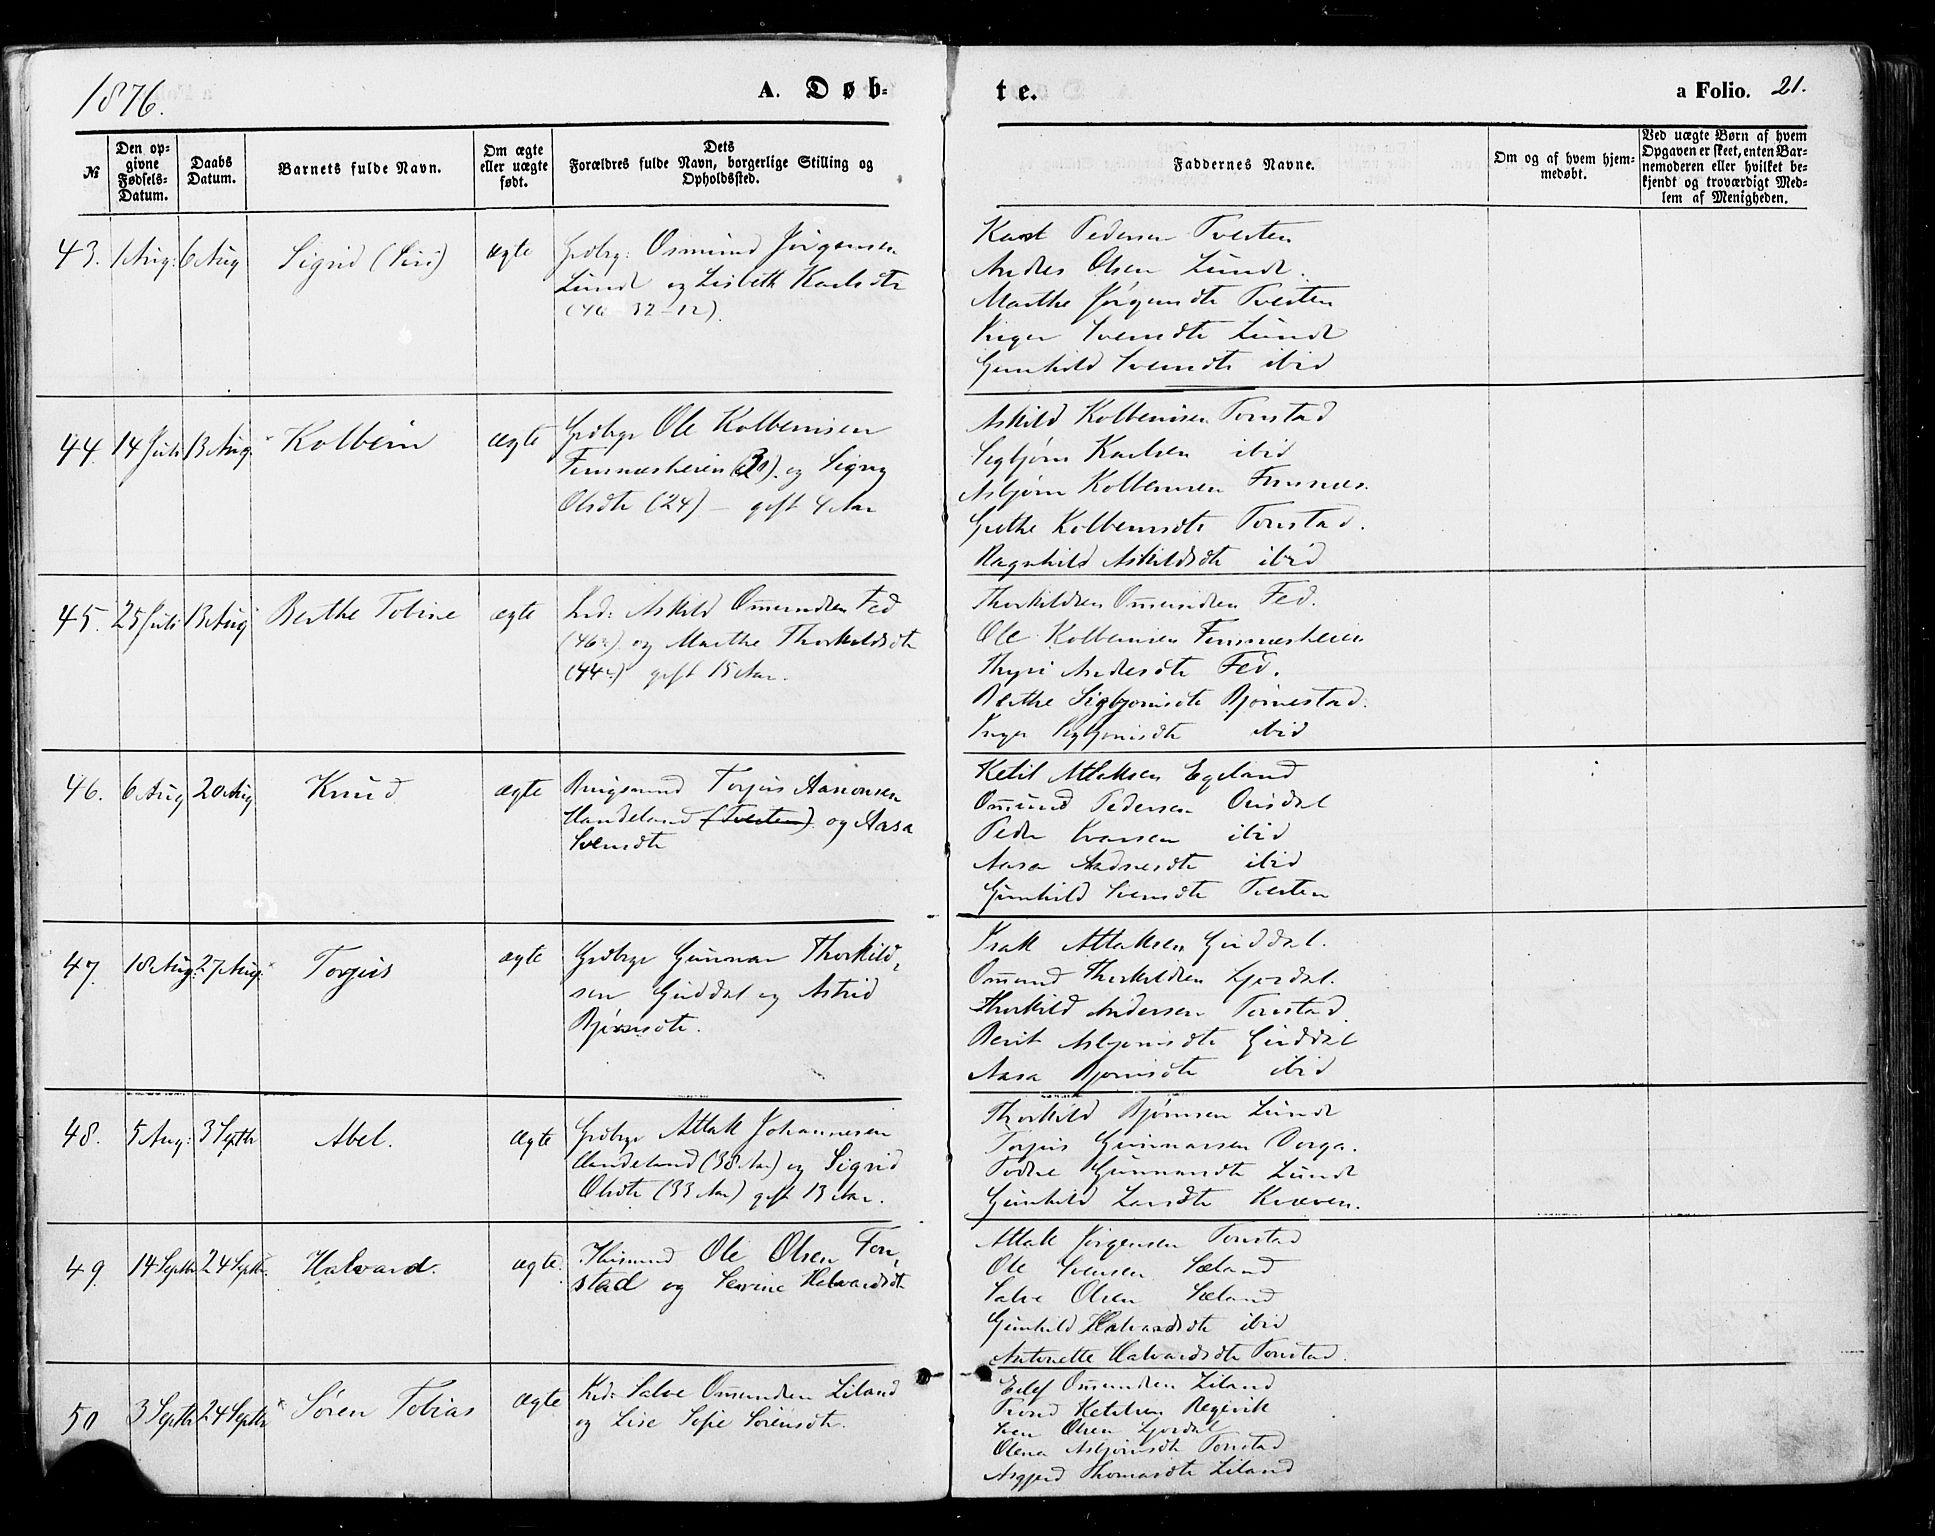 1876.
A. Døb-
te.
a Folio. 21.
№
Den op-
givne
Fødsels-
Datum.
Daabs
Datum.
Barnets fulde Navn.
Om ægte
eller uægte
født.
Dets
Forældres fulde Navn, borgerlige Stilling og
Opholdssted.
Faddernes Navne.
Om og af hvem hjem-
medøbt.
Ved uægte Børn af hvem
Opgaven er skeet, enten Bar-
nemoderen eller hvilket be-
kjendt og troværdigt Med-
lem af Menigheden.
43. 1 Aug: 6 Aug Sigrid (Siri) ægte
Grdbrg: Osmund Jørgensen
Lund og Lisbeth Karlsdtr
Pedersen Tveiten
Andres Olsen Lund.
Marthe Jørgensdtr Tveiten
Inger Svensdtr Lund
Gunhild Svensdtr ibid
44. 14 Juli 13 Aug. Kolbein ægte
Grdbrgr Ole Kolbeinsen
Finnæsheien og Signy
Olsdtr (24) – gift 4 Aar
Askild Kolbeinsen Tonstad
Sigbjørn Karlsen ibid
Asbjørn Kolbeinsen Finnæs.
Grethe Kolbeinsdtr Tonstad.
Ragnhild Askildsdtr ibid
45. 25 Juli 13 Aug Berthe Tobine ægte
Askild Omundsen Fed
(46) og Marthe Thorkildsdtr
(44) gift 15 Aar.
Omundsen Fed.
Ole Kolbeinsen Finnæsheien
Thyri Andersdtr Fed.
Berthe Sigbjørnsdtr Bjørnestad.
Inger Sigbjørnsdtr ibid
46. 6 Aug 20 Aug Knud ægte
Torjus Aanonsen
Handeland (Tveiten) og Aasa
Svensdtr
Ketil Atlaksen Egeland
Omund Pedersen Ousdal
Peder Ivarsen ibid
Aasa Aadnesdtr ibid
Gunhild Svensdtr Tveiten
47. 18 Aug: 27 Aug: Torjus ægte
Grdbrgr Gunnar Thorkild-
sen Girddal og Astrid
Bjørnsdtr.
Isak Atlaksen Girddal.
Omund Thorkildsen Ljosdal.
Thorkild Andersen Tonstad.
Berit Asbjørnsdtr Girddal
Aasa Bjørnsdtr ibid
48. 5 Aug: 3 Septbr Abel. ægte
Grdbrgr Atlak Johannesen
Handeland (38 Aar) og Sigrid
Olsdtr (33 Aar) gift 13 Aar.
Thorkild Bjørnsen Lund
Torjus Gunnarsen Dorga.
Todne Gunnarsdtr Lund
Gunhild Larsdtr Kvæven.
49. 14 Septbr 24 Septbr. Halvard. ægte.
Huusmd Ole Olsen Ton-
stad og Serine Halvardsdtr
Atlak Jørgensen Tonstad
Ole Svensen Sæland
Salve Olsen Sæland
Gunhild Halvardsdtr ibid
Antonette Halvardsdtr Tonstad.
50 3 Septbr 24 Septbr Søren Tobias ægte
Salve Omundsen Liland
og Lise Sofie Sørensdtr.
Eilef Omundsen Liland
Trond Ketilsen Regevik
Sven Olsen Ljosdal
Olena Asbjørnsdtr Tonstad
Asgjerd Thomasdtr Liland